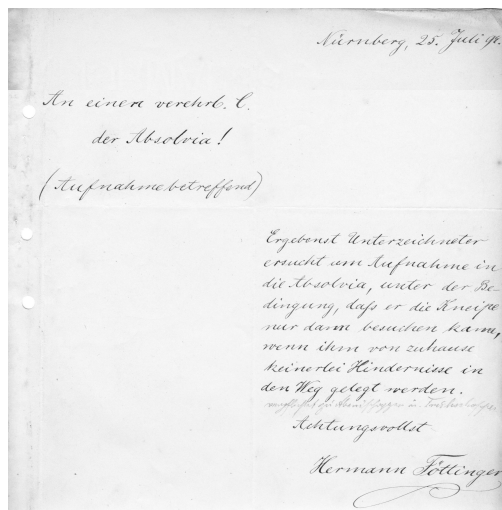 Nürnberg, 25. Juli 98.
An einen verehrl. C.
der Absolvia!
(Aufnahme betreffend)
Ergebenst Unterzeichneter
ersucht um Aufnahme in
die Absolvia, unter der Be-
dingung, daß er die Kneipe
nur dann besuchen kann,
wenn ihm von zuhause
keinerlei Hindernisse in
den Weg gelegt werden.
Achtungsvollst
Hermann Föttinger